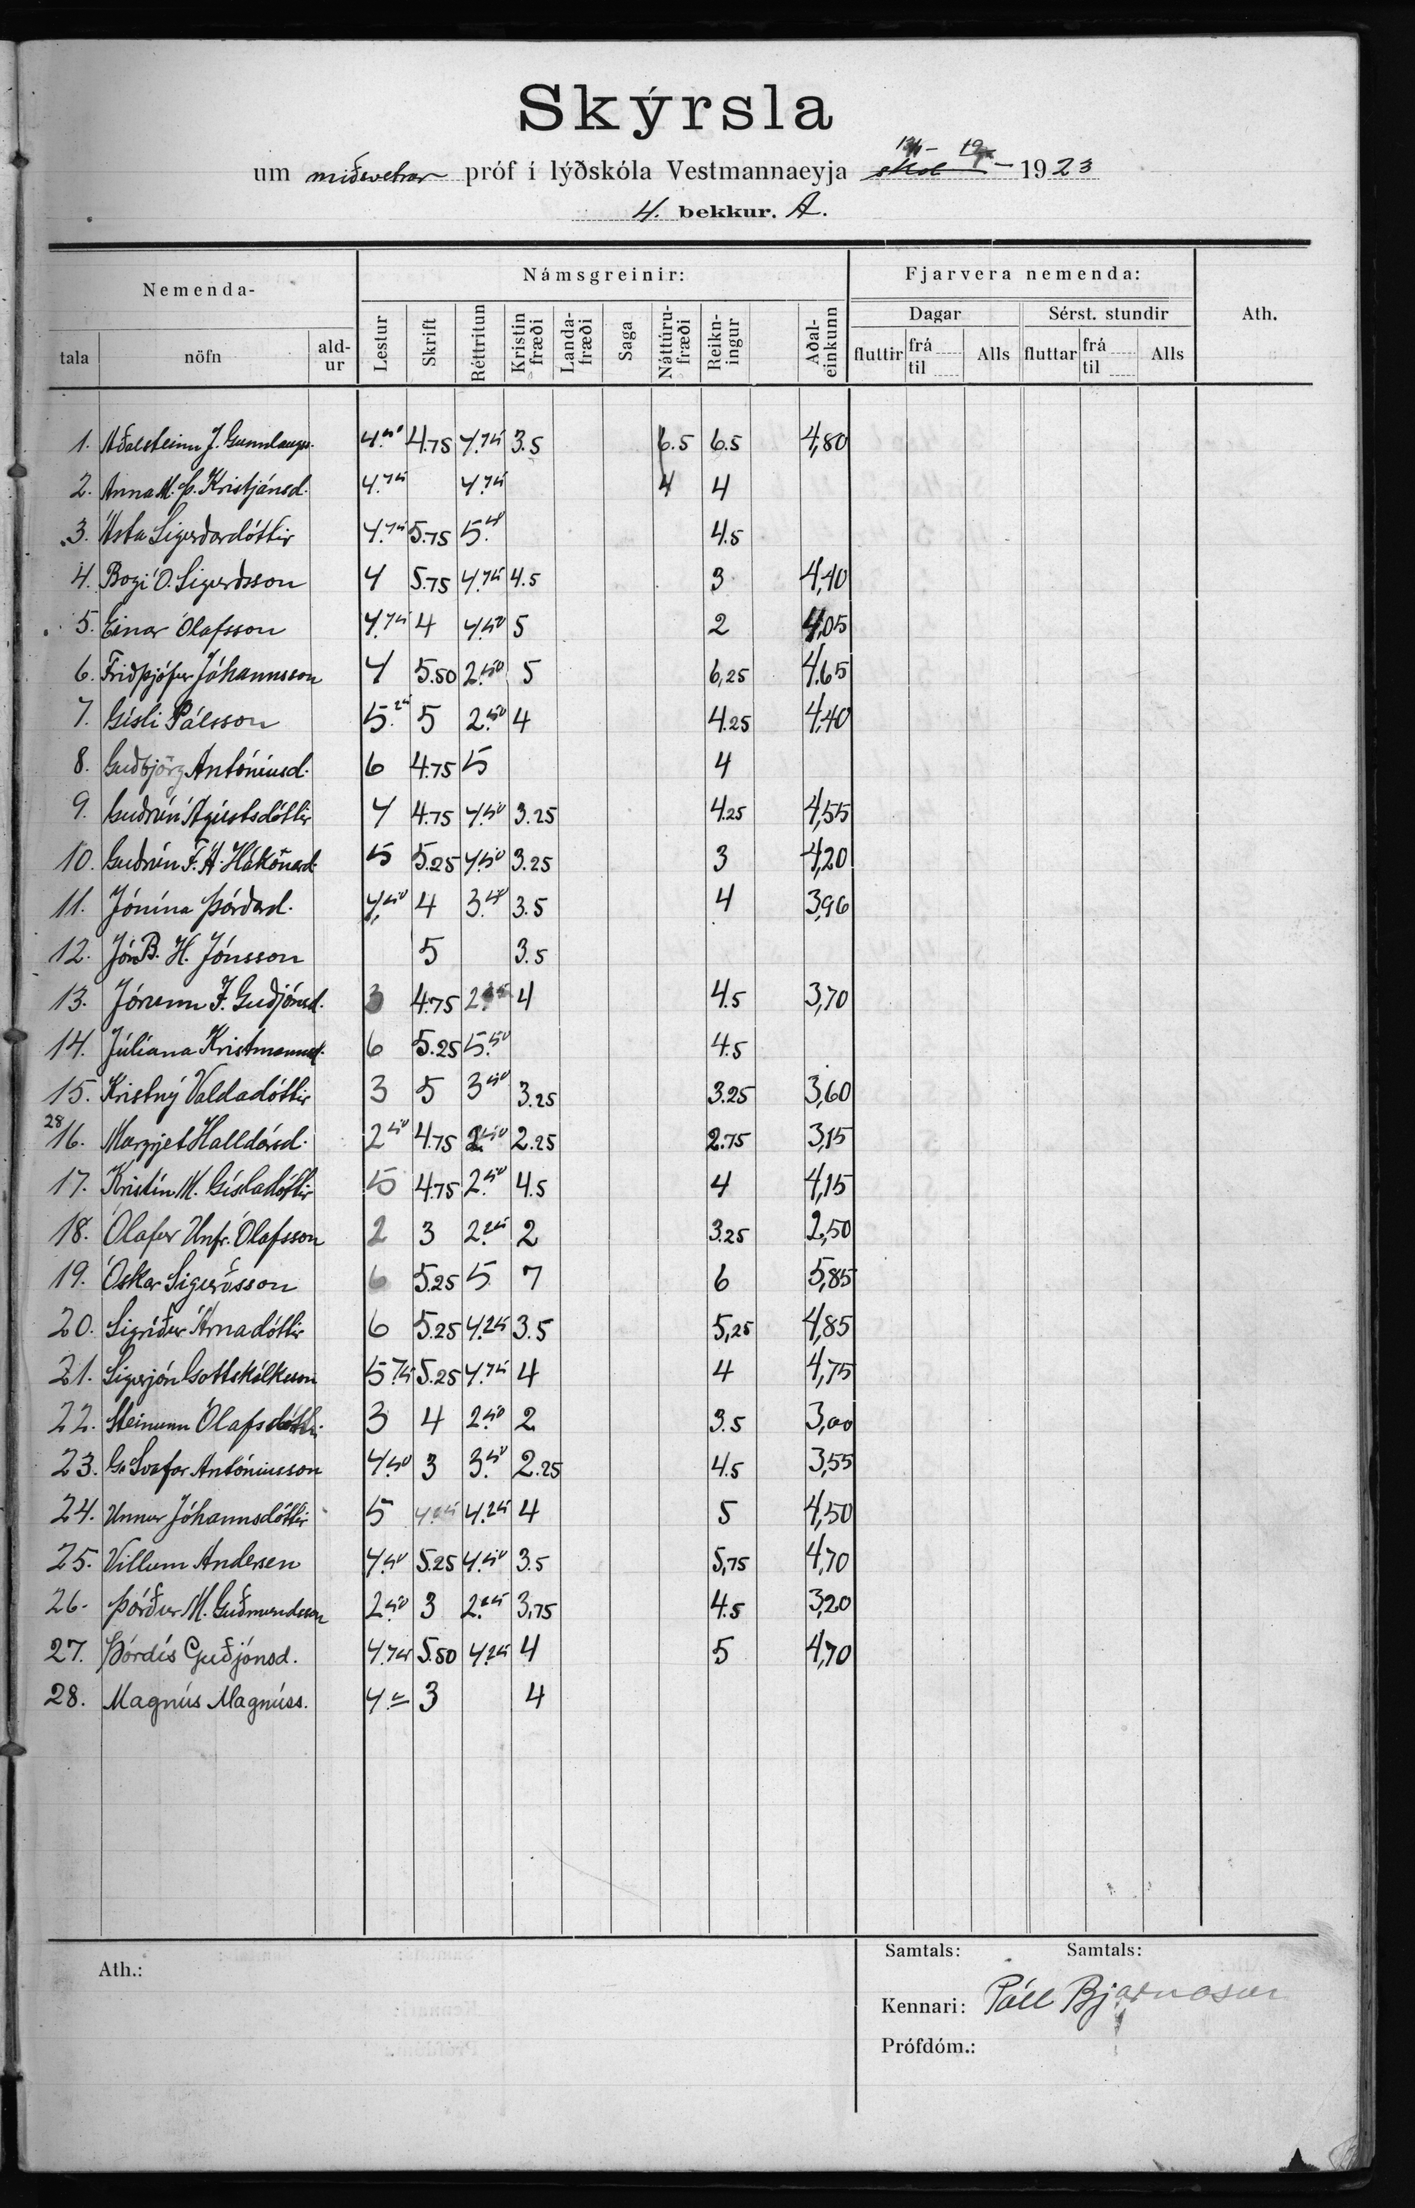 Skýrsla
um miðsvetrar próf í lýðskóla Vestmannaeyja 19 23
4. bekkur. A.
Nemenda- Námsgreinir: Fjarvera nemenda: Ath.
tala nöfn ald-ur Lestur Skrift Réttritun Kristin fræði Landa-fræði Saga Náttúru-fræði Reikn-ingur Aðal-einkunn Dagar Sérst. stundir
fluttir frá til Alls fluttar frá til Alls
1. Aðalsteinn J. Gunnlaugs. 4.50 4.75 4.75 3.5 6.5 6.5 4,80
2. Anna M. Þ. Kristjánsd. 4.75 4.75 4 4
3. Ásta Sigurðardóttir 4.75 5.75 5. 4.5
4. Bogi Ó. Sigurðsson 4 5.75 4.75 4.5 3 4,40
5. Einar Ólafsson 4.75 4 4.50 5 2 4,05
6. Friðþjófur Jóhannsson 4 5.50 2.50 5 6,25 4.65
7. Gísli Pálsson 5.25 5 2.50 4 4.25 4,40
8. Guðbjörg Antóníusd. 6 4.75 5 4
9. Guðrún Ágústsdóttir 4 4.75 4.50 3.25 4.25 4,55
10. Guðrún F. Á. Hákonard. 5 5.25 4.50 3.25 3 4,20
11. Jónína Þórðard. 4.50 4 3. 3.5 4 3,96
12. Jón B. H. Jónsson 5 3.5
13. Jórunn F. Guðjónsd. 3 4.75 4 4.5 3,70
14. Júlíana Kristmannsd. 6 5.25 5.50 4.5
15. Kristný Valdadóttir 3 5 3.50 3.25 3.25 3,60
28
16. Margrjet Halldórsd. 2.50 4.75 2.50 2.25 2.75 3,15
17. Kristín M. Gísladóttir 5 4.75 2.50 4.5 4 4,15
18. Ólafur Unfr. Ólafsson 2 3 2.25 2 3.25 2,50
19. Óskar Sigurðsson 6 5.25 5 7 6 5,85
20. Sigríður Árnadóttir 6 5.25 4.25 3.5 5,25 4,85
21. Sigurjón Gottskálksson 5.75 5.25 4.75 4 4 4,75
22. Steinunn Ólafsdóttir 3 4 2.50 2 3.5 3,00
23. G. Svafar Antóníusson 4.50 3 3.50 2.25 4.5 3,55
24. Unnur Jóhannsdóttir 5 4.25 4.25 4 5 4,50
25. Villum Andersen 4.50 5.25 4.50 3.5 5,75 4,70
26. Þórður M. Guðmundsson 2.50 3 2.25 3,75 4.5 3,20
27. Þórdís Guðjónsd. 4.75 5.50 4.25 4 5 4,70
28. Magnús Magnúss. 4 3 4
Ath.: Samtals: Samtals:
Kennari: Páll Bjarnason
Prófdóm.: